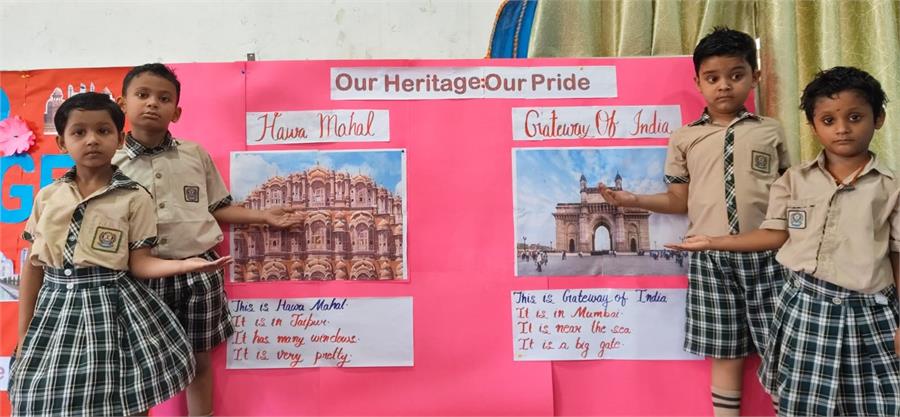 Our Heritage:Our Pride
Hawa Mahal
Gateway Of India
This is Hawa Mahal.
It is in Jaipur.
It has many windows.
It is very pretty.
This is Gateway of India
It is in Mumbai.
It is near the sea
It is a big gate.